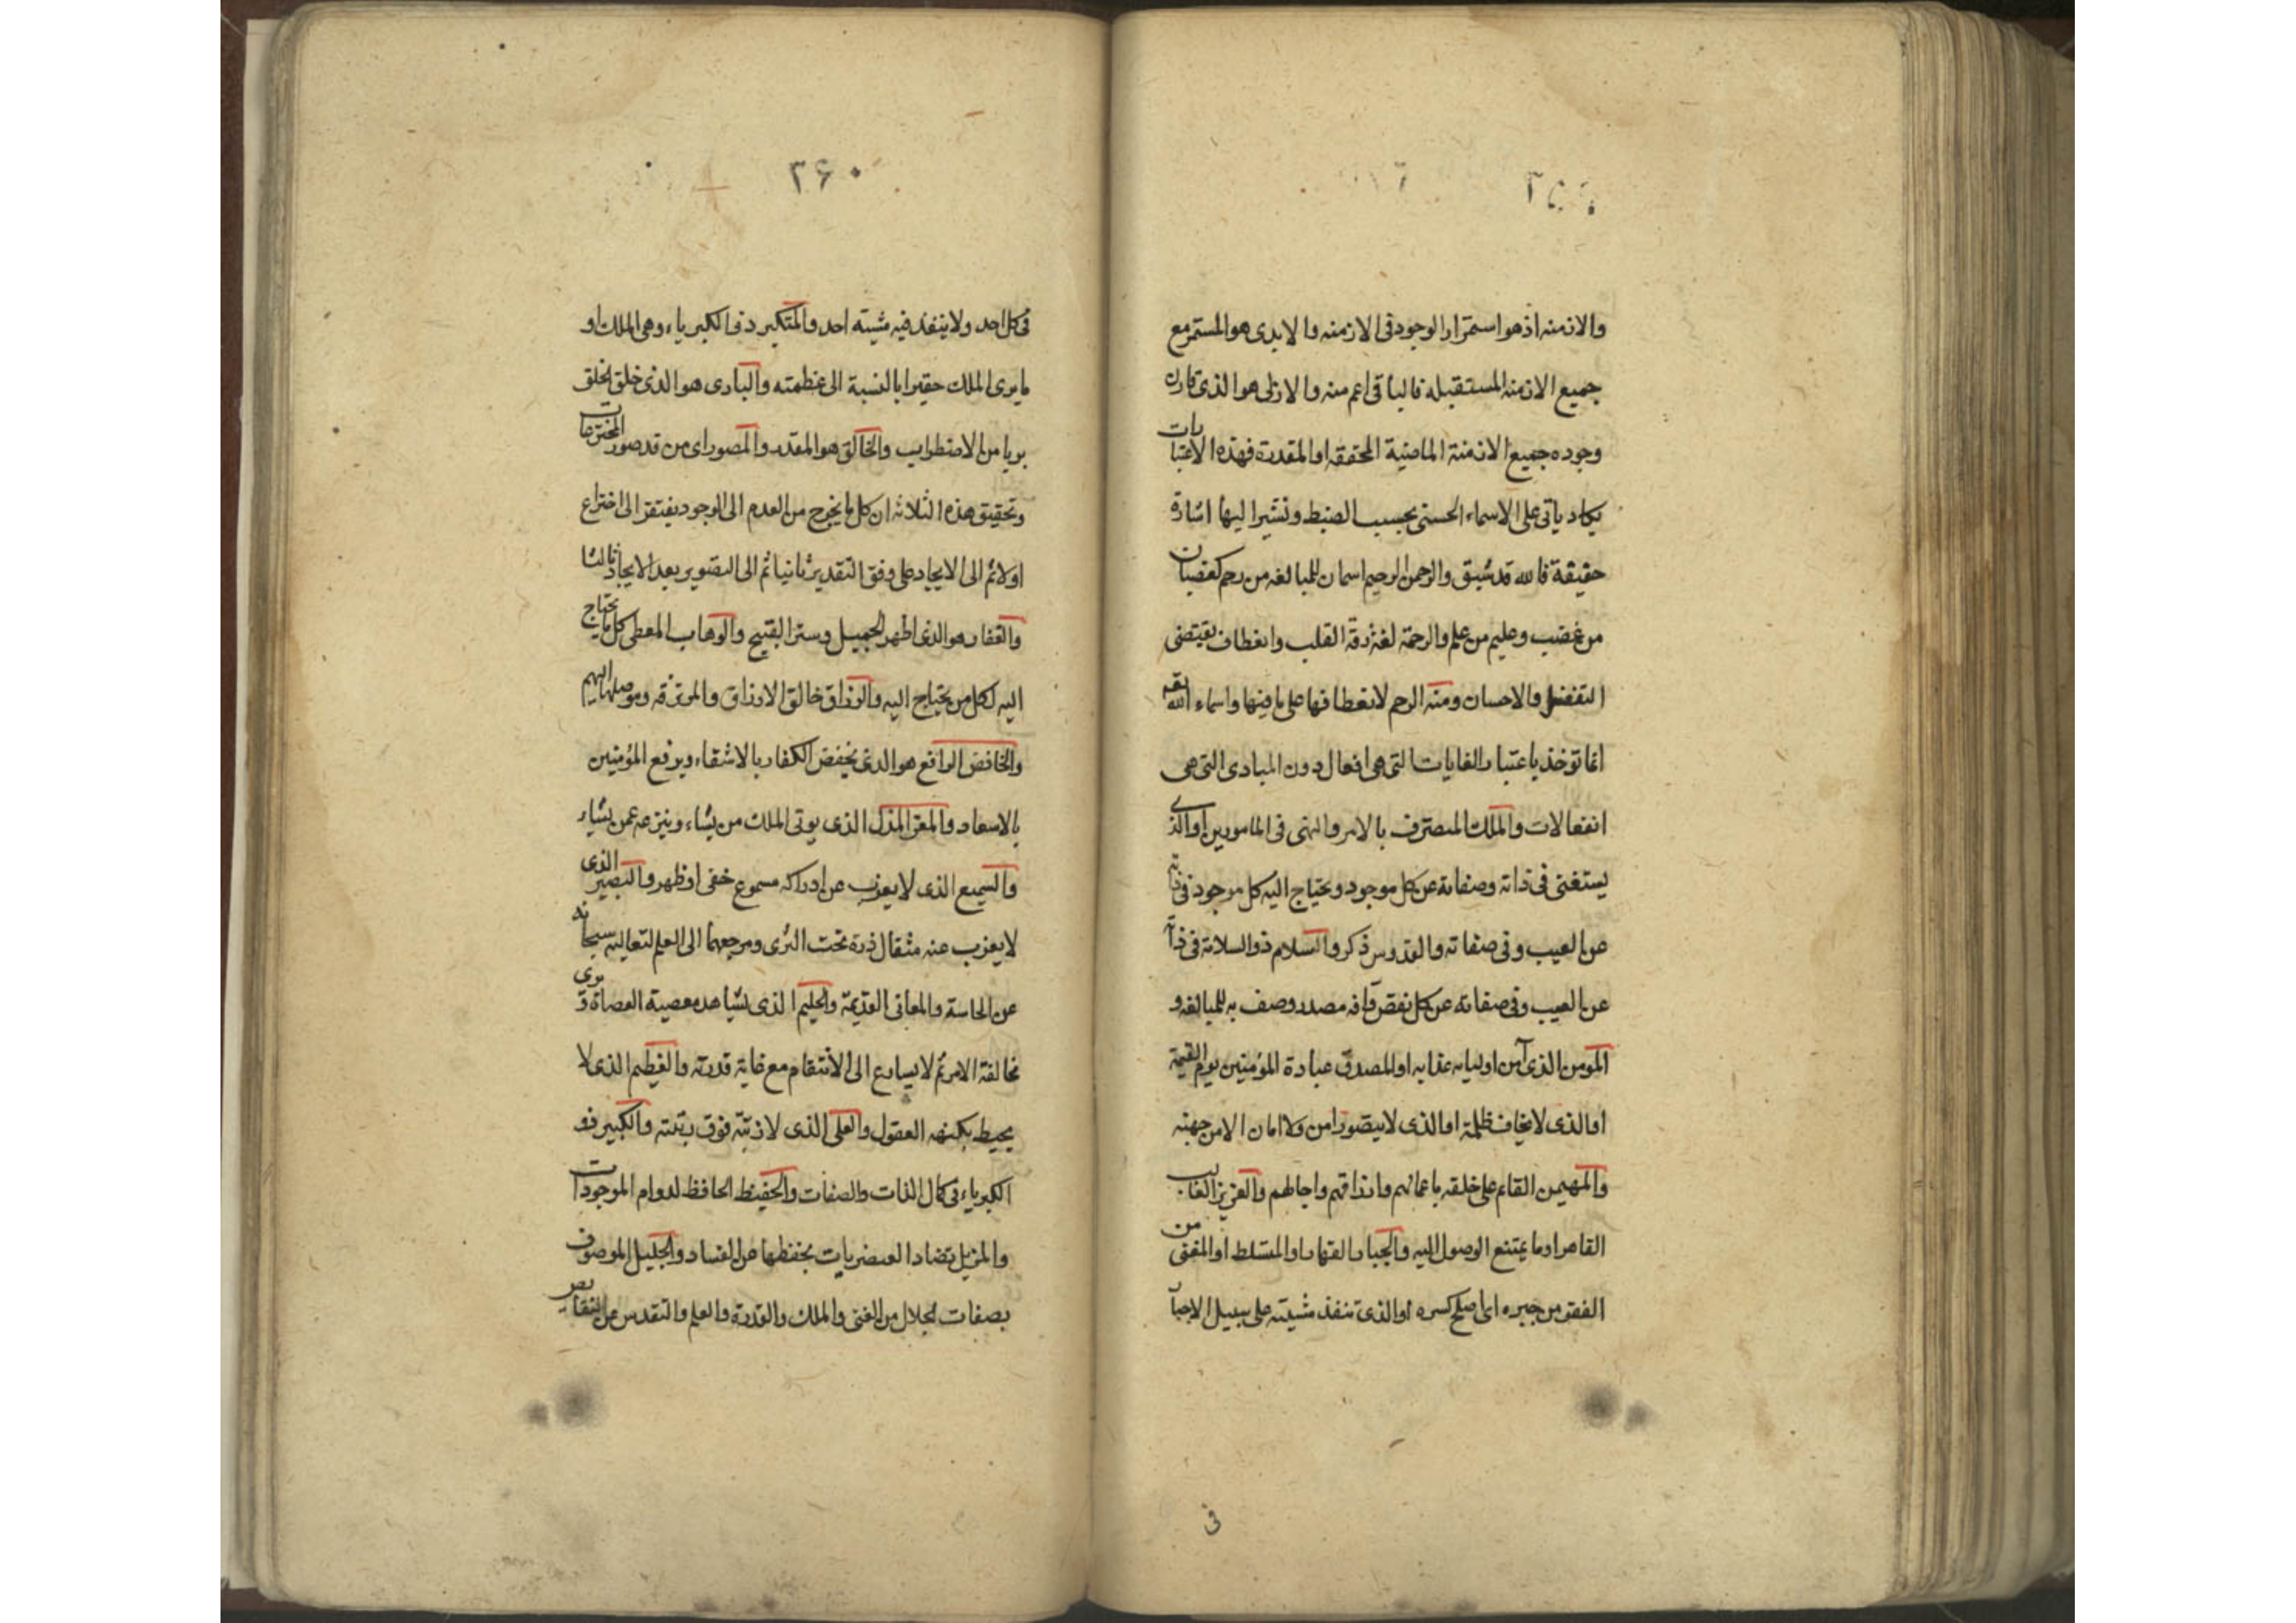 والازمنه اذ هو استمرار الوجود فى الازمنه والابدى هو المستمر مع
جميع الازمنه المستقبله فالباقى اعم منه والازلى هو الذى قارن
وجوده جميع الازمنة الماضية المحققه او المقدرة فهذه الاعتبارات
يكاد ياتى على الاسماء الحسنى بحسب الضبط ونشير اليها اشارة
حقيقة فالله قد سبق والرحمن الرحيم اسمان للمبالغه من رحم كغضبان
من غضب وعليم من علم والرحمة لغة رقة القلب وانعطاف يقتضى
التفضل والاحسان ومنه الرحم لانعطافها على ما فيها واسماء الله
انما توخذ باعتبار الغايات التى هى افعال دون المبادى التى هى
انفعالات والملك المتصرف بالامر والنهى فى المامورين او الذى
يستغنى فى ذاته وصفاته عن كل موجود ويحتاج اليه كل موجود فى ذاته
عن العيب وفى صفاته والقدوس ذكر والسلام ذو السلامة فى ذاته
عن العيب وفى صفاته عن كل نقص وافه مصدر وصف به للمبالغه و
المومن الذى آمن اوليائه عذابه او المصدق عبادة المؤمنين يوم القيمة
او الذى لا يخاف ظلمه او الذى لا يتصور امن ولا امان الا من جهته
والمهيمن القائم على خلقه باعمالهم وارزاقهم واجالهم والعزيز الغالب
القاهر او ما يمتنع الوصول اليه والجبار القهار او المتسلط او المغنى من
الفقر من جبره اى اصلح كسره او الذى تنفذ مشيته على سبيل الاجبار
فى
٣۶٠
فى كل احد ولا ينفذ فيه مشيته احد والمتكبر ذو الكبرياء وهى الملك او
ما يرى الملك حقيرا بالنسبة الى عظمته والبارى هو الذى خلق الخلق
بريا من الاضطراب والخالق هو المقدر والمصور اى من قد صور المخترعات
وتحقيق هذه الثلاثه ان كل ما يخرج من العدم الى الوجود يفتقر الى اختراع
اولا ثم الى الايجاد على وفق التقدير ثانيا ثم الى التصوير بعد الايجاد ثالثا
والغفار هو الذى اظهر الجميل وستر القبيح والوهاب المعطى كل ما يحتاج
اليه لكل من يحتاج اليه والرزاق خالق الارزاق والمرتزقه وموصلها اليهم
والخافض الرافع هو الذى يخفض الكفار بالاشقاء ويرفع المؤمنين
بالاسعاد والمعز المذل الذى يوتى الملك من يشاء وينزعه عمن يشاء
والسميع الذى لا يعزب عن ادراكه مسموع خفى او ظهر والبصير الذى
لا يعزب عنه مثقال ذرة تحت الثرى ومرجعهما الى العلم لتعاليه سبحانه
عن الحاسة والمعانى القديمة والحليم الذى يشاهد معصية العصاة ويرى
مخالفة الامر ثم لا يسارع الى الانتقام مع غاية قدرته والعظيم الذى لا
يحيط بكنهه العقول والعلى الذى لا رتبة فوق رتبته والكبير ذو
الكبرياء فى كمال الذات والصفات والحفيظ الحافظ لدوام الموجودات
والمزيل تضاد العنصريات بحفظها عن الفساد والجليل الموصوف
بصفات الجلال من الغنى والملك والقدرة والعلم والتقدس عن النقائص